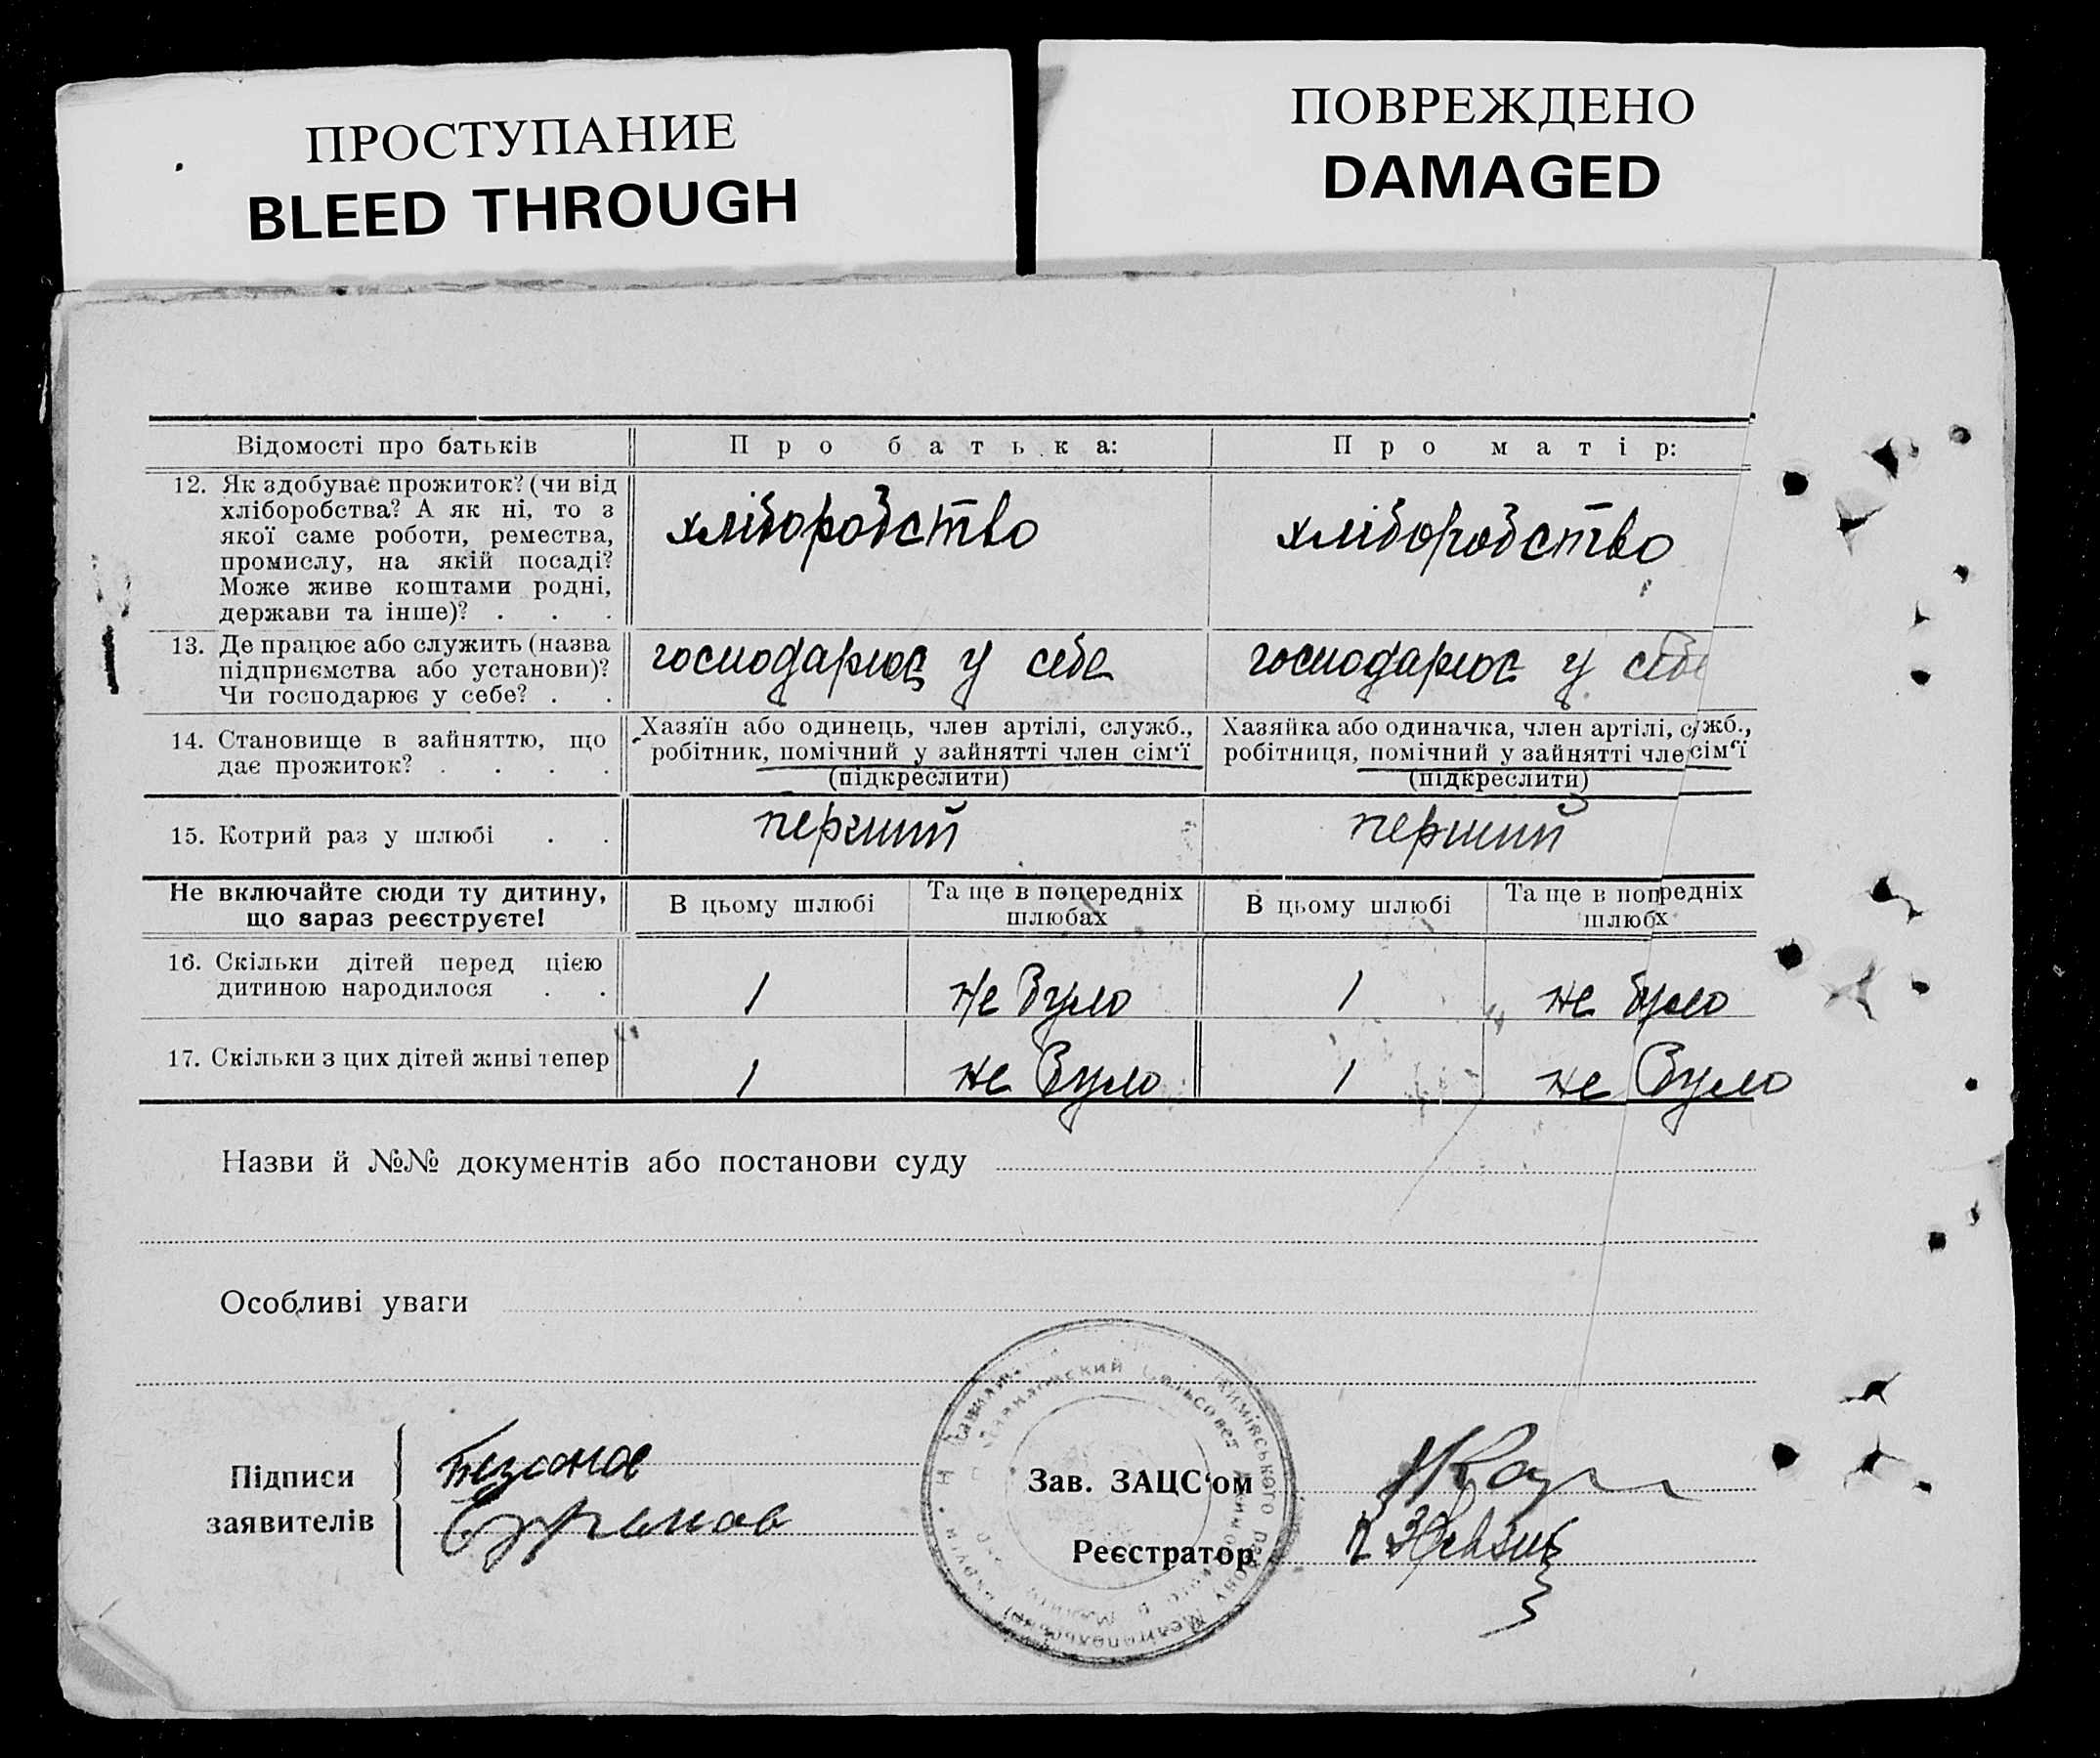 ПРОСТУПАНИЕ
BLEED THROUGH
ПОВРЕЖДЕНО
DAMAGED
Відомості про батьків
Про батька:
Про матір:
12. Як здобуває прожиток? (чи від
хліборобства? А як ні, то з
якої саме роботи, ремества,
промислу, на якій посаді?
Може живе коштами родні,
держави та інше)? . . .
хліборобство
хліборобство
13. Де працює або служить (назва
підприємства або установи)?
Чи господарює у себе? . .
господарює у себе
господарює у себе
14. Становище в зайняттю, що
дає прожиток? . . . .
Хазяїн або одинець, член артілі, служб.,
робітник, помічний у зайнятті член сім'ї
(підкреслити)
Хазяйка або одиначка, член артілі, служб.,
робітниця, помічний у зайнятті чле сім'ї
(підкреслити)
15. Котрий раз у шлюбі . .
перший
перший
Не включайте сюди ту дитину,
що зараз реєструєте!
В цьому шлюбі
Та ще в попередніх
шлюбах
В цьому шлюбі
Та ще в попредніх
шлюбх
16. Скільки дітей перед цією
дитиною народилося . .
1
не було
1
не було
17. Скільки з цих дітей живі тепер
1
не було
1
не було
Назви й №№ документів або постанови суду
Особливі уваги
Підписи
заявителів
Зав. ЗАЦС'ом
Реєстратор
Сельсовет
району Мелітопольської округи